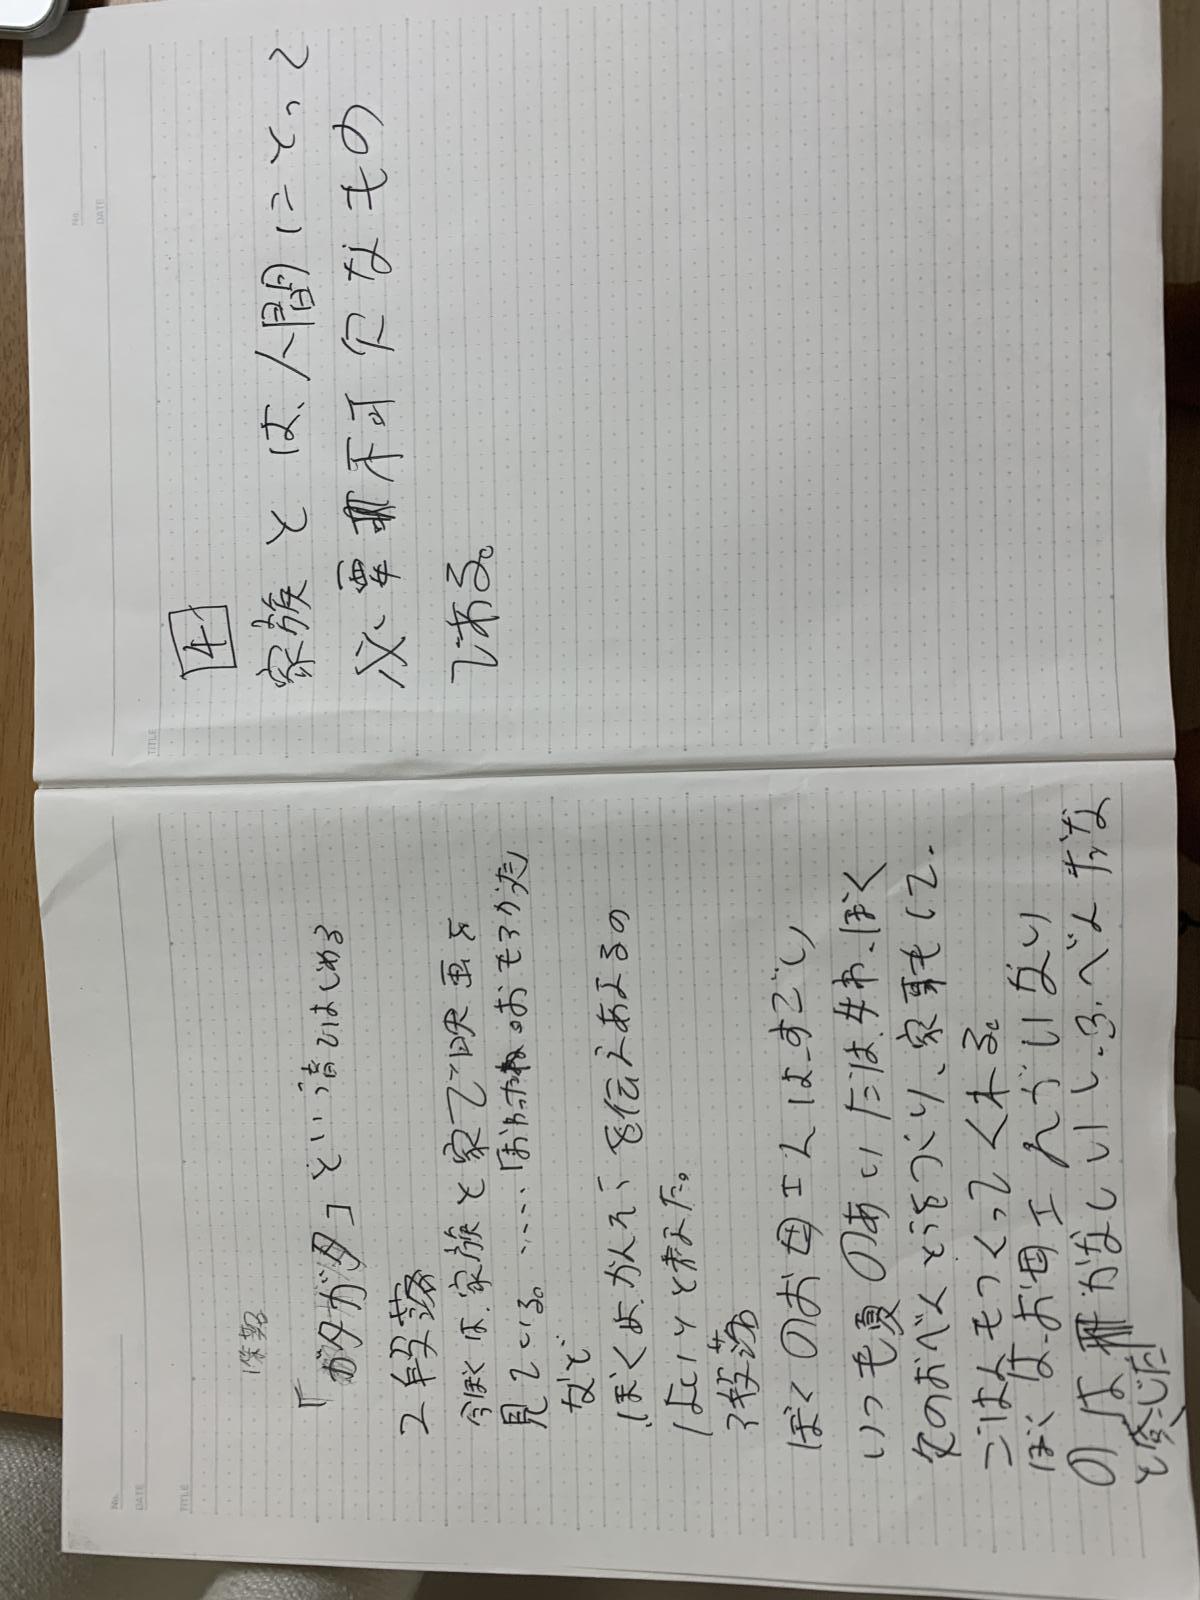 No.
DATE
TITLE
1段落
「ガタガタ」という音ではじめる
2段落
今ぼくは、家族と家で映画を
見ている。……おもろかった
など
ぼくよ、かんそ、を伝えあよるの
はいいと
3段落
ぼくのお母エんは、すごい
いつも夏のあいだは、妹わ、ぼく
のおべんとうをつくり、家事もして、
ごはんもつくってくれる。
ぼくは、お母エんがいない
のはがなしいし、ふべんだな
と感じた
No.
DATE
TITLE
4
家族とは、人間にとって
必要不可欠なもの
である。